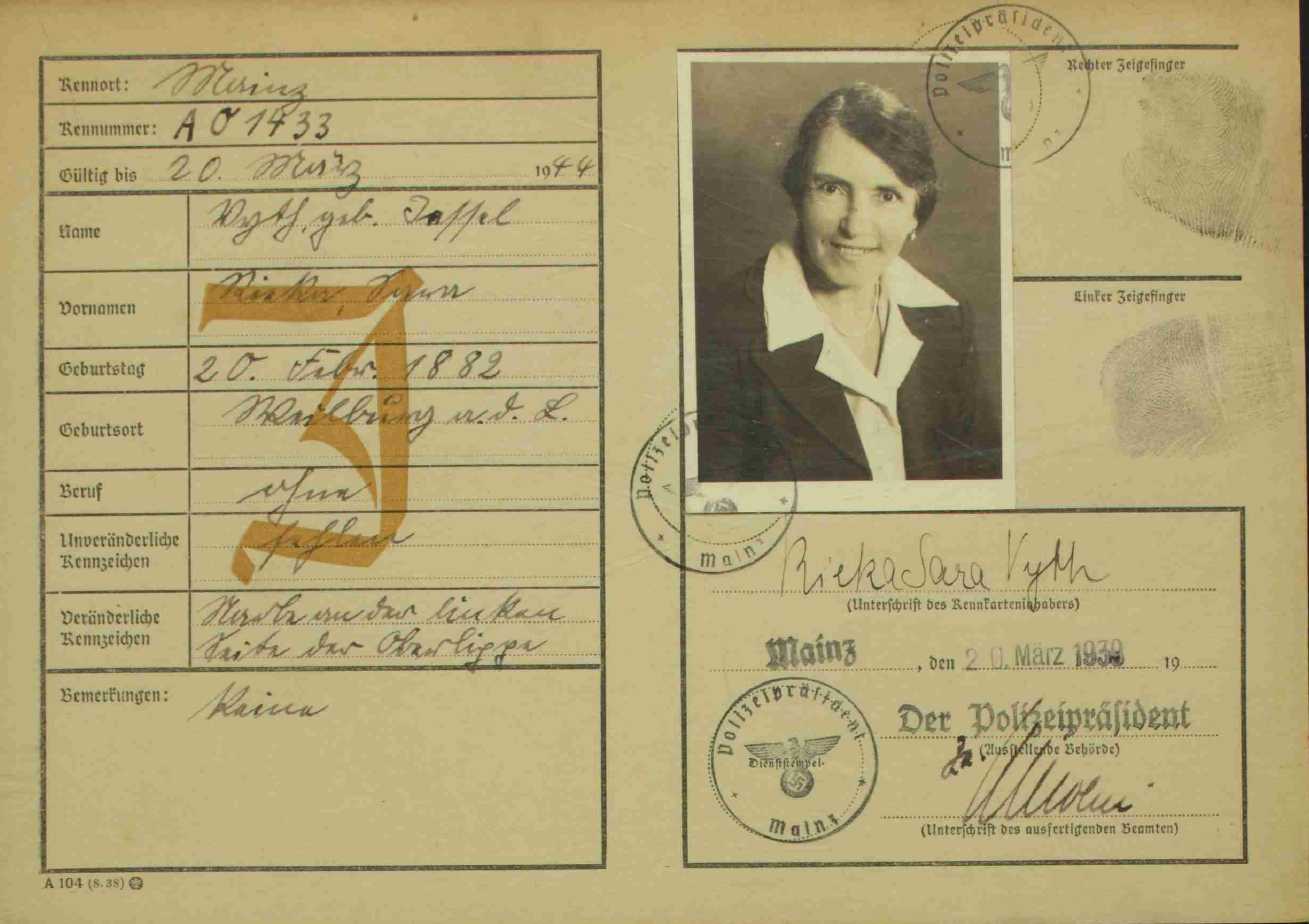 Kennort: Mainz
Kennummer: A 01433
Gültig bis 20. März 1944
Name Vyth, geb. Jessel
Vornamen Rieka, Sara
Geburtstag 20. Febr. 1882
Geburtsort Weilburg a. d. L.
Beruf ohne
Unveränderliche Kennzeichen fehlen
Veränderliche Kennzeichen Narbe an der linken
Seite der Oberlippe
Bemerkungen: Keine
J
A 104 (8. 38)
Polizeipräsident
Rechter Zeigefinger
Linker Zeigefinger
Polizeipräsident Mainz
Rieka Sara Vyth
(Unterschrift des Kennkarteninhabers)
Mainz, den 20. März 1939 19
Der Polizeipräsident
(Ausstellende Behörde)
Polizeipräsident
Dienststempel
Mainz
(Unterschrift des ausfertigenden Beamten)